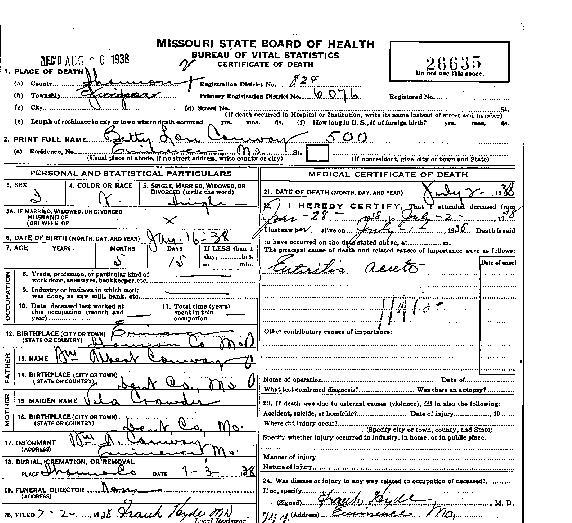 MISSOURI STATE BOARD OF HEALTH
BUREAU OF VITAL STATISTICS
CERTIFICATE OF DEATH
REC'D AUG 6 1938
26635
Do not use this space.
1. PLACE OF DEATH
(a) County Shannon Registration District No. 824
(b) Township Primary Registration District No. 6076 Registered No.
(c) City (d) Street No. St.
(If death occurred in Hospital or Institution, write its name instead of street and number)
(e) Length of residence in city or town where death occurred yrs. mos. ds. (f) How long in U. S., if of foreign birth? yrs. mos. ds.
2. PRINT FULL NAME Betty Lou Conway 500
(a) Residence, No. Eminence Mo. St.
(Usual place of abode, if no street address, write county or city) (If nonresident, give city or town and State)
PERSONAL AND STATISTICAL PARTICULARS
3. SEX 4. COLOR OR RACE 5. SINGLE, MARRIED, WIDOWED, OR DIVORCED (write the word)
Single
5A. IF MARRIED, WIDOWED, OR DIVORCED
HUSBAND OF
(OR) WIFE OF
6. DATE OF BIRTH (MONTH, DAY, AND YEAR) 16-38
7. AGE YEARS MONTHS DAYS IF LESS than 1 day, hrs. or min.
5
OCCUPATION
8. Trade, profession, or particular kind of work done, sawyer, bookkeeper, etc.
9. Industry or business in which work was done, as saw mill, bank, etc.
10. Date deceased last worked at this occupation (month and year)
11. Total time (years) spent in this occupation
12. BIRTHPLACE (CITY OR TOWN) Eminence
(STATE OR COUNTRY) Shannon Co Mo
FATHER
13. NAME Wm Albert Conway
14. BIRTHPLACE (CITY OR TOWN)
(STATE OR COUNTRY) Dent Co, Mo
MOTHER
15. MAIDEN NAME Crowder
16. BIRTHPLACE (CITY OR TOWN)
(STATE OR COUNTRY) Dent Co, Mo.
17. INFORMANT Wm A. Conway
(ADDRESS) Eminence Mo.
18. BURIAL, CREMATION, OR REMOVAL
PLACE Shannon Co DATE 7-3 38
19. FUNERAL DIRECTOR
(ADDRESS)
20. FILED 7-2- 1938 Frank Hyde MD
Local Registrar
MEDICAL CERTIFICATE OF DEATH
21. DATE OF DEATH (MONTH, DAY, AND YEAR) July 2 1938
22. I HEREBY CERTIFY, That I attended deceased from
28- 1938, to July-2- 1938
I last saw alive on July 1938 Death is said
to have occurred on the date stated above, at m.
The principal cause of death and related causes of importance were as follows:
Date of onset
Enteritis Acute
Other contributory causes of importance:
Name of operation Date of
What test confirmed diagnosis? Was there an autopsy?
23. If death was due to external causes (violence), fill in also the following:
Accident, suicide, or homicide? Date of injury 19
Where did injury occur?
(Specify city or town, county, and State)
Specify whether injury occurred in industry, in home, or in public place.
Manner of injury
Nature of injury
24. Was disease or injury in any way related to occupation of deceased?
If so, specify
(Signed) Frank Hyde M. D.
(Address) Eminence Mo.